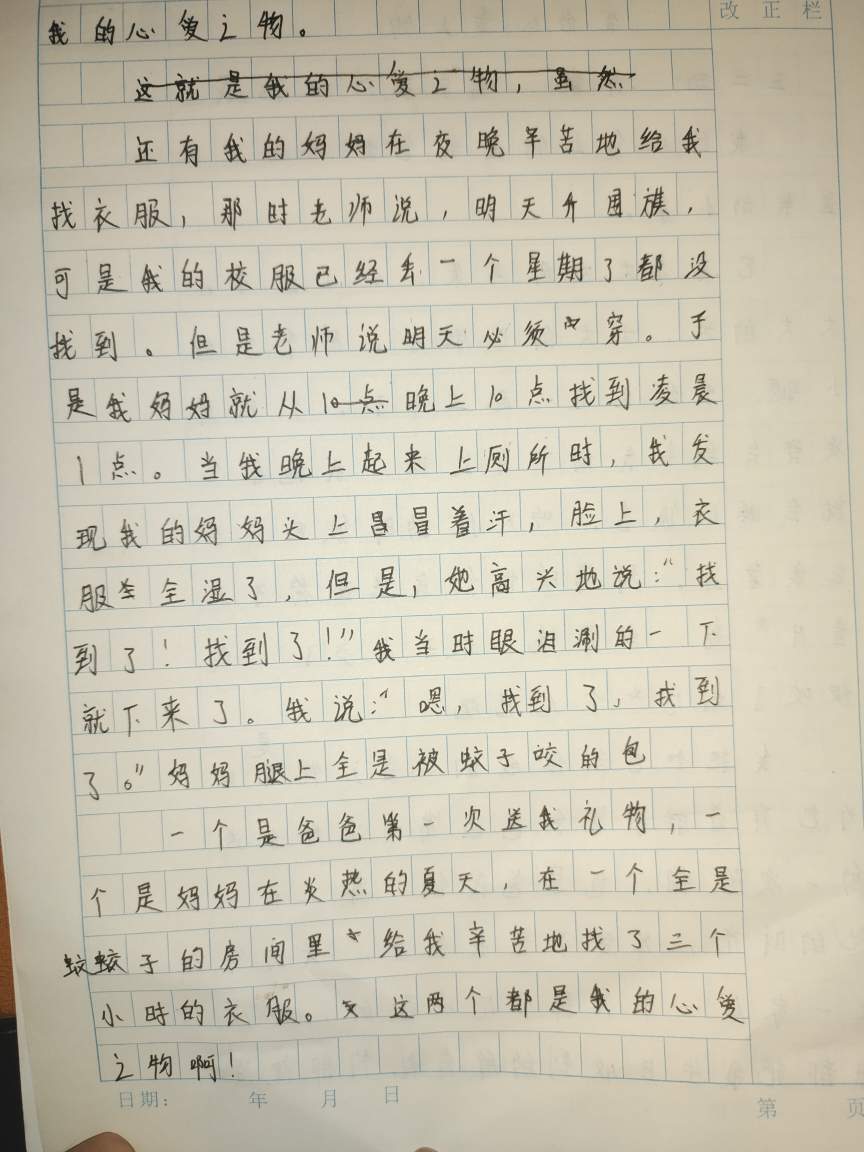 改正栏
我的心爱之物。
这就是我的心爱之物，虽然
还有我的妈妈在夜晚辛苦地给我
找衣服，那时老师说，明天升国旗，
可是我的校服已经丢一个星期了都没
找到。但是老师说明天必须穿。于
是我妈妈就从10点晚上10点找到凌晨
1点。当我晚上起来上厕所时，我发
现我的妈妈头上冒冒着汗，脸上，衣
服全全湿了，但是，她高兴地说：“找
到了！找到了！”我当时眼泪涮的一下
就下来了。我说：“嗯，找到了，找到
了。”妈妈腿上全是被蚊子咬的包
一个是爸爸第一次送我礼物，一
个是妈妈在炎热的夏天，在一个全是
蚊蚊子的房间里给我辛苦地找了三个
小时的衣服。这两个都是我的心爱
之物啊！
日期： 年 月 日
第 页